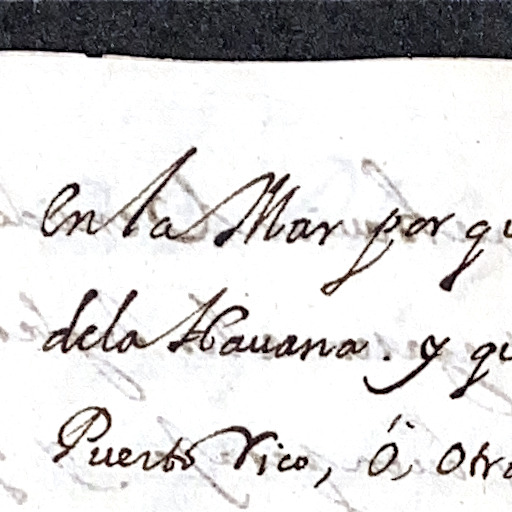 en la Mar por qu
dela Havana. y qu
Puerto Rico, ó, otra